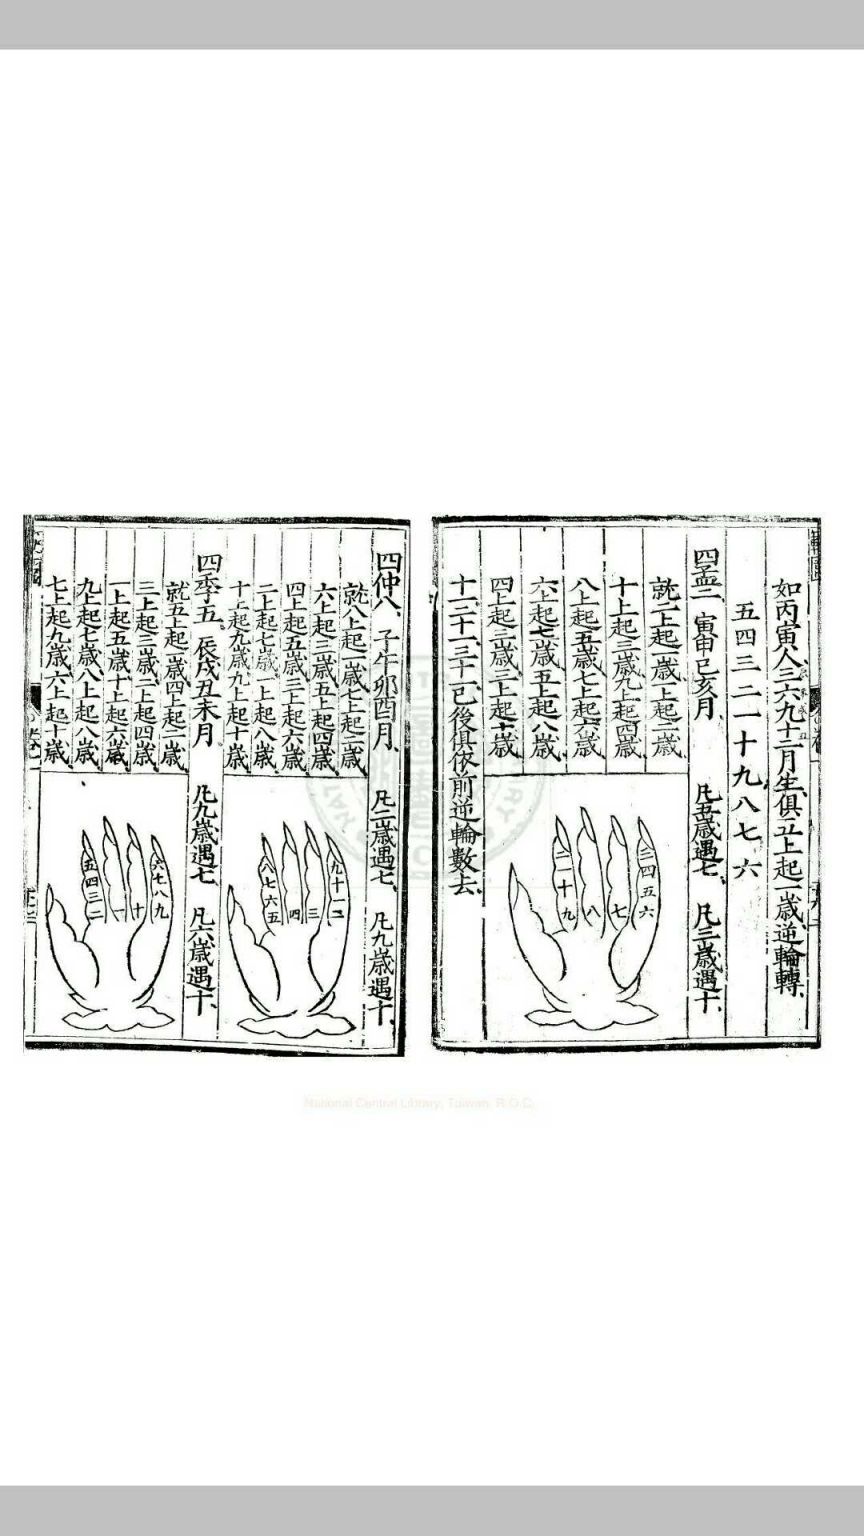 如丙寅人三六九十二月生俱五上起一歲逆輪轉
五四三二一十九八七六
四孟二寅申巳亥月凡五歲遇七凡三歲遇十
就二上起一歲一上起二歲
十上起三歲九上起四歲
八上起五歲七上起六歲
六上起七歲五上起八歲
四上起九歲三上起十歲
三四五六
七
八
二一十九
十一二十一三十一已後俱依前逆輪數去
四仲八子午卯酉月凡二歲遇七凡九歲遇十
就八上起一歲七上起二歲
六上起三歲五上起四歲
四上起五歲三上起六歲
二上起七歲一上起八歲
十上起九歲九上起十歲
九十一二
三
四
八七六五
四季五辰戌丑未月凡九歲遇七凡六歲遇十
就五上起一歲四上起二歲
三上起三歲二上起四歲
一上起五歲十上起六歲
九上起七歲八上起八歲
七上起九歲六上起十歲
六七八九
十
一
五四三二
卷一
National Central Library, Taiwan, R.O.C.